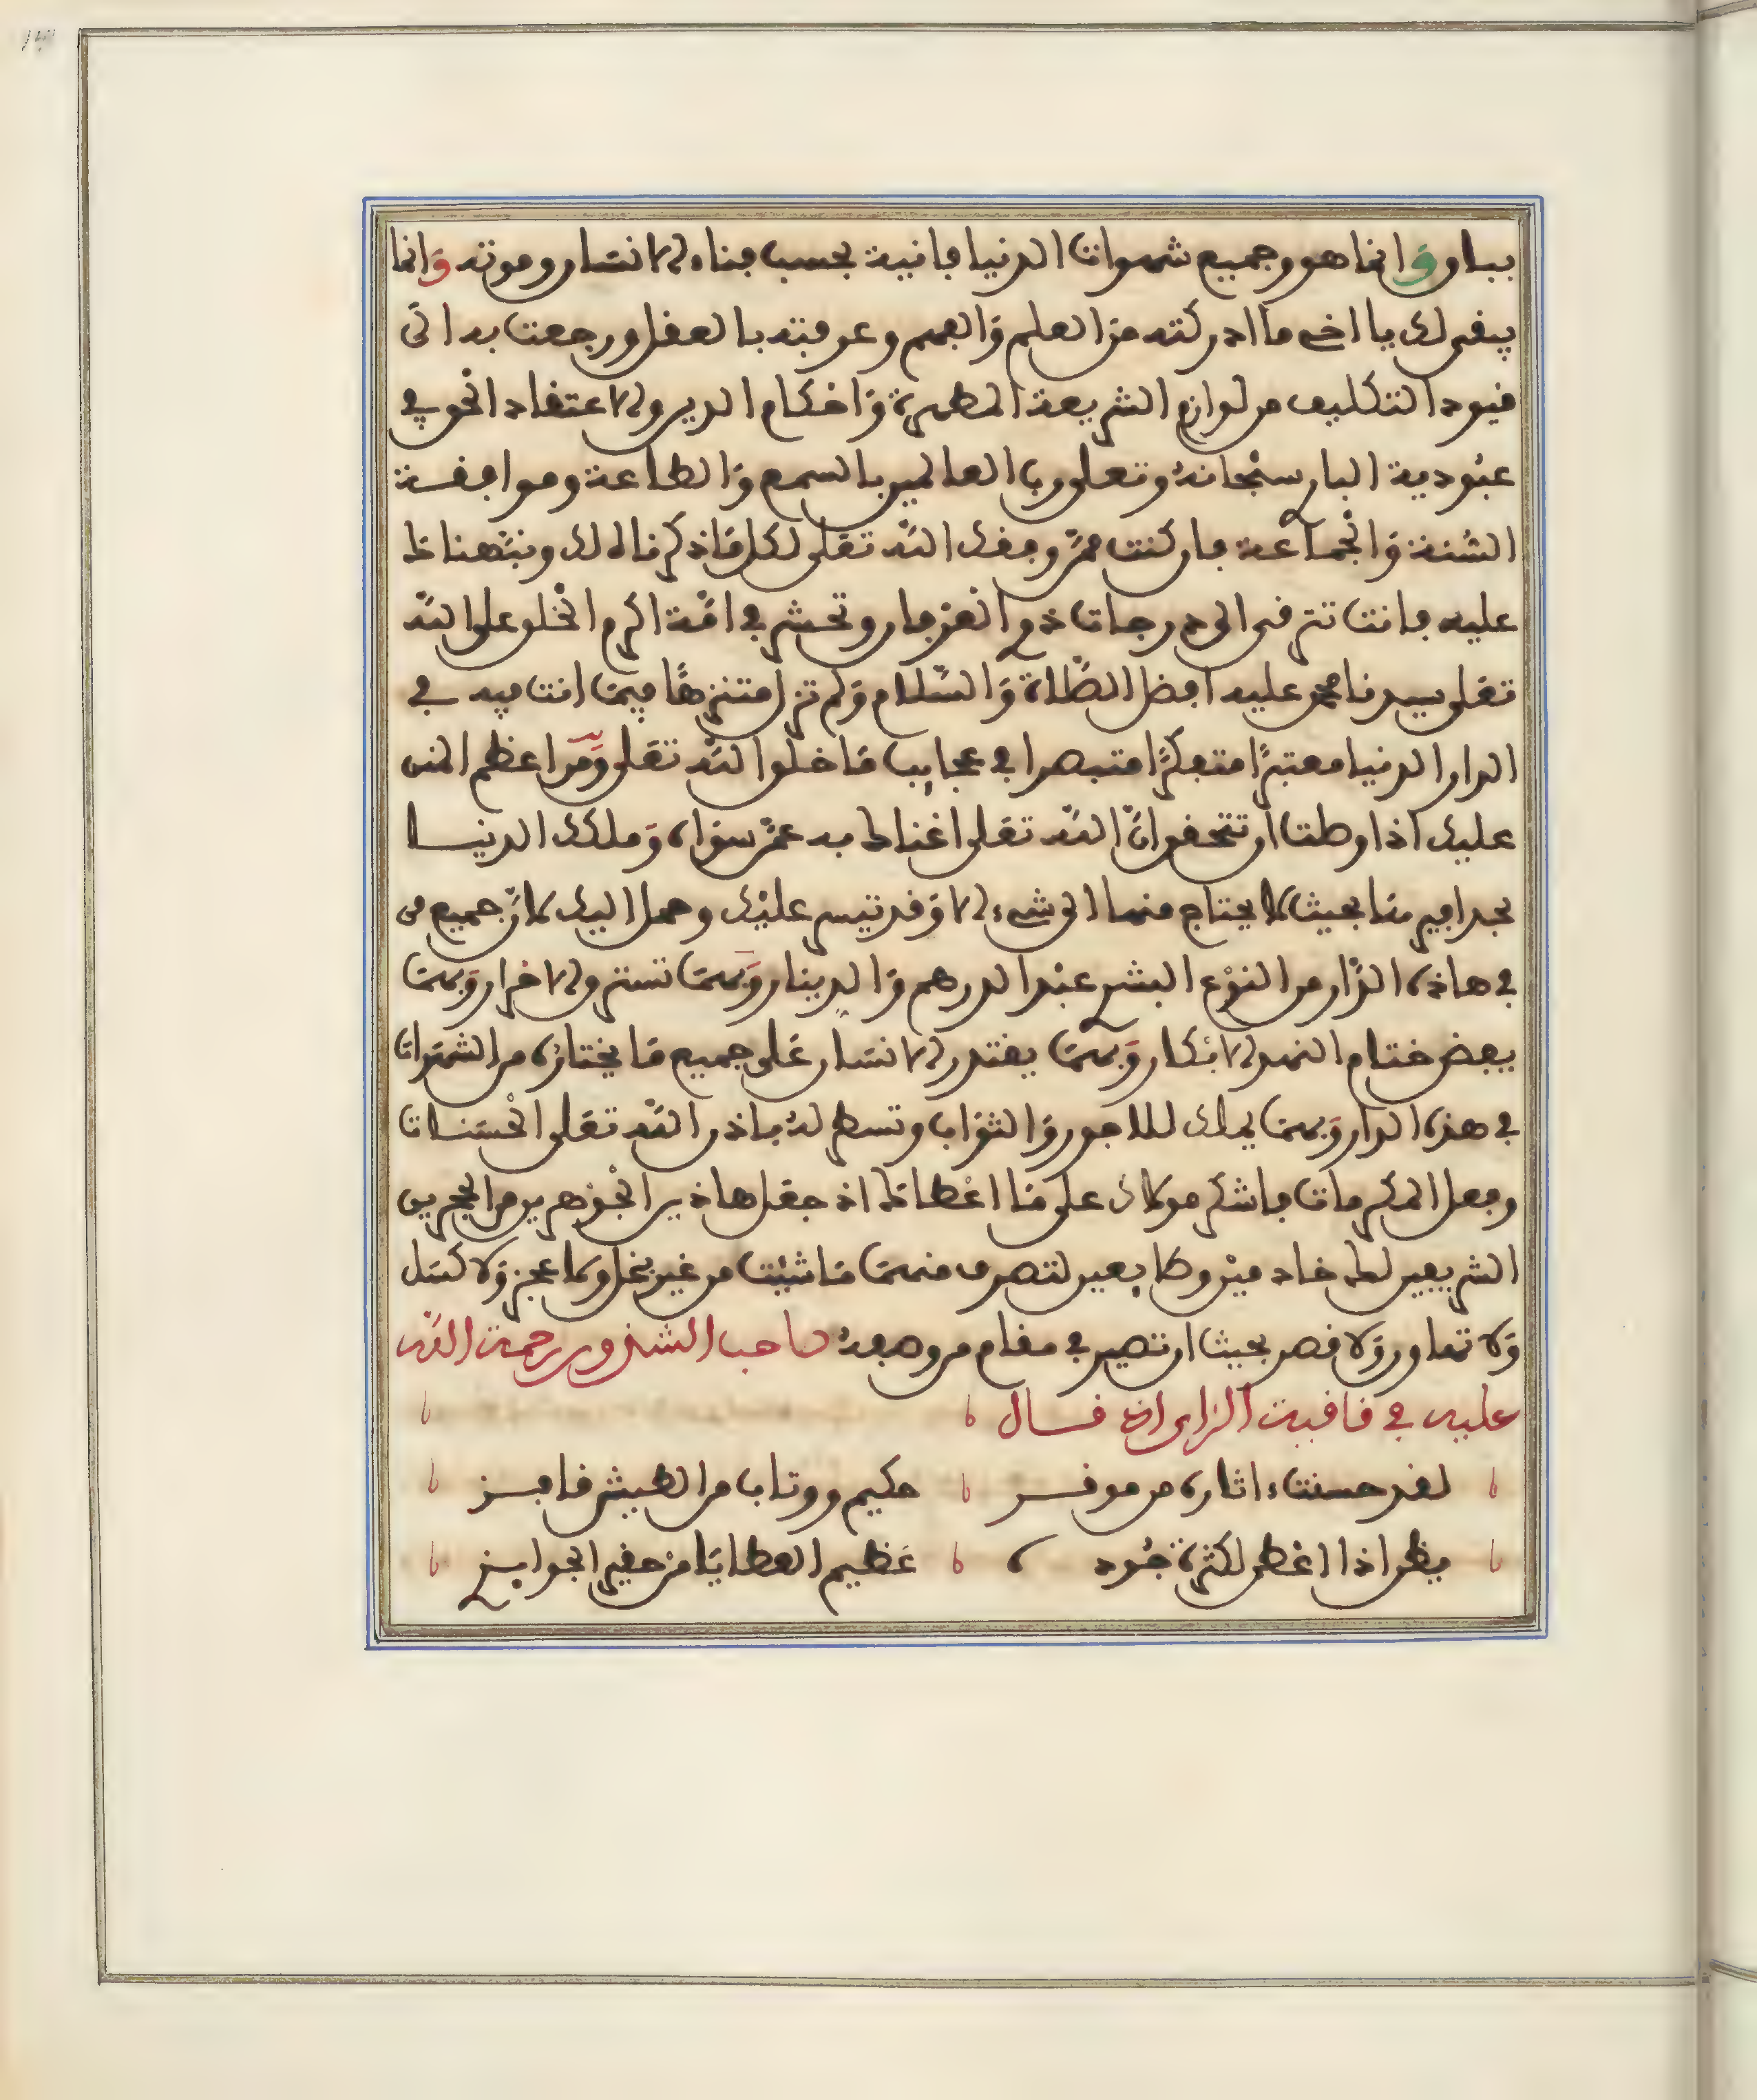 بباق وانما هو وجميع شهوات الدنيا فانية بحسب فناء الانسان وموته وانما
يبقى لك يا اخي ما ادركته من العلم والفهم وعرفته بالعقل ورجعت به الى
قيود التكليف من لوازم الشريعة المطهرة واحكام الدين والاعتقاد الحق في
عبودية البار سبحانه وتعلى رب العالمين بالسمع والطاعة وموافقة
السنة والجماعة فان كنت ممن وفقه الله تعلى لكل ما ذكرناه لك ونبهناك
عليه فانت تترقى الى درجات ذوي العرفان وتحشر في امة اكرم الخلق على الله
تعلى سيدنا محمد عليه افضل الصلاة والسلام ولم تزل متنزها فيما انت فيه في
الدار الدنيا معتبرا متفكرا متبصرا في عجايب ما خلق الله تعلى ومن اعظم المنن
عليك اذا وصلت ان تتحقق ان الله تعلى اغناك به عمن سواه وملكك الدنيا
بحذافيرها بحيث لا يحتاج منها الى شيء الا وقد تيسر عليك وحمل اليك لان جميع من
في هاذه الدار من النوع البشري عبد الدرهم والدينار وبهما تسترق الاحرار وبهما
يفض ختام النهد الابكار وبهما يقتدر الانسان على جميع ما يختاره من الشهوات
في هذه الدار وبهما يملك للاجور والثواب وتسطر له باذن الله تعلى الحسنات
وفعل المكرمات فاشكر مولاك على ما اعطاك اذ جعل هاذين الجوهرين من الحجرين
الشريفين لك خادمين وطايعين لتصرف منهما ما شئت من غير بخل ولا عجز ولا كسل
ولا تهاون ولا قصر بحيث ان تصير في مقام من وصفه صاحب الشذور رحمة الله
عليه في قافية الزاي اذ قال
لقد حسنت ءاثاره من موفر حكيم وفتاب من العيش فايز
يظل اذا اعطى لكثرة جوده عظيم العطايا من حقير الجوايز